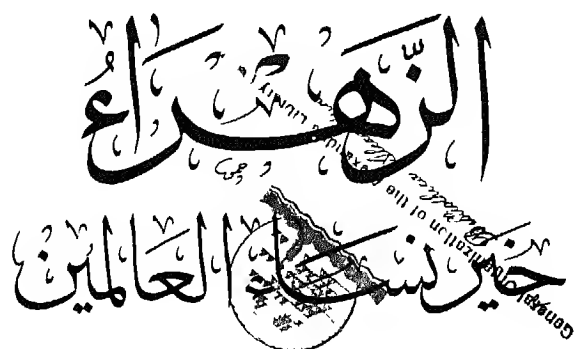 الزَّهْرَاءُ
خَيْرُ نِسَاءِ العَالمين
General Organization of the Alexandria Library